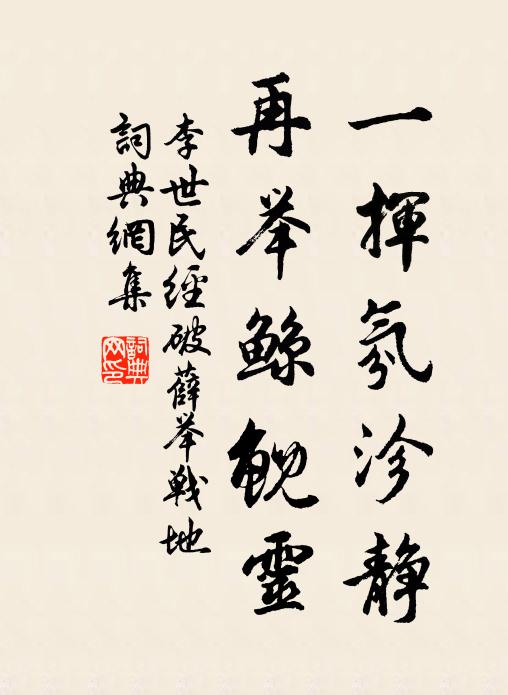 一揮氛沴静
再举鯨鯢靈
李世民經破薛举戰地
詞典網集
詞典
网印